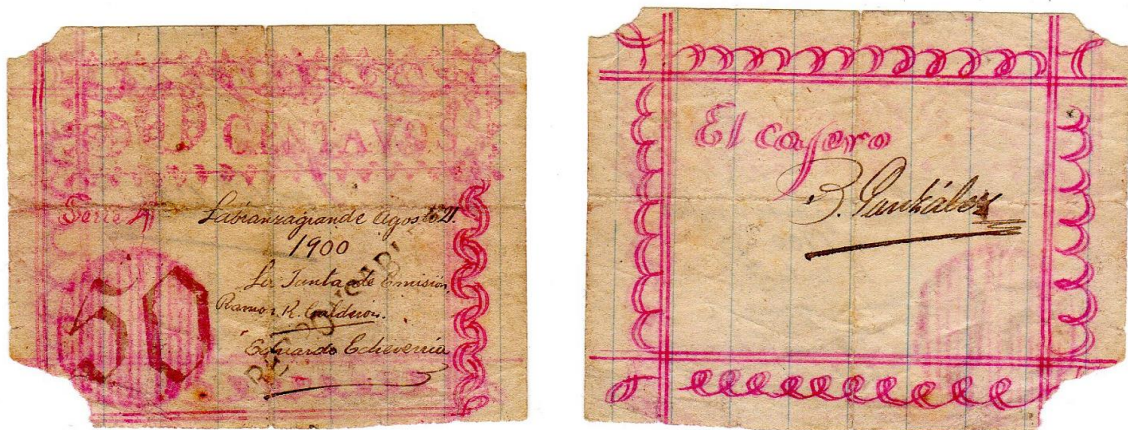 50 CENTAVOS
Serie A
Labranzagrande Agosto 21.
1900
La Junta de Emisión,
Ramon R. Calderon.
Eduardo Echeverria
50
El cajero
B. González